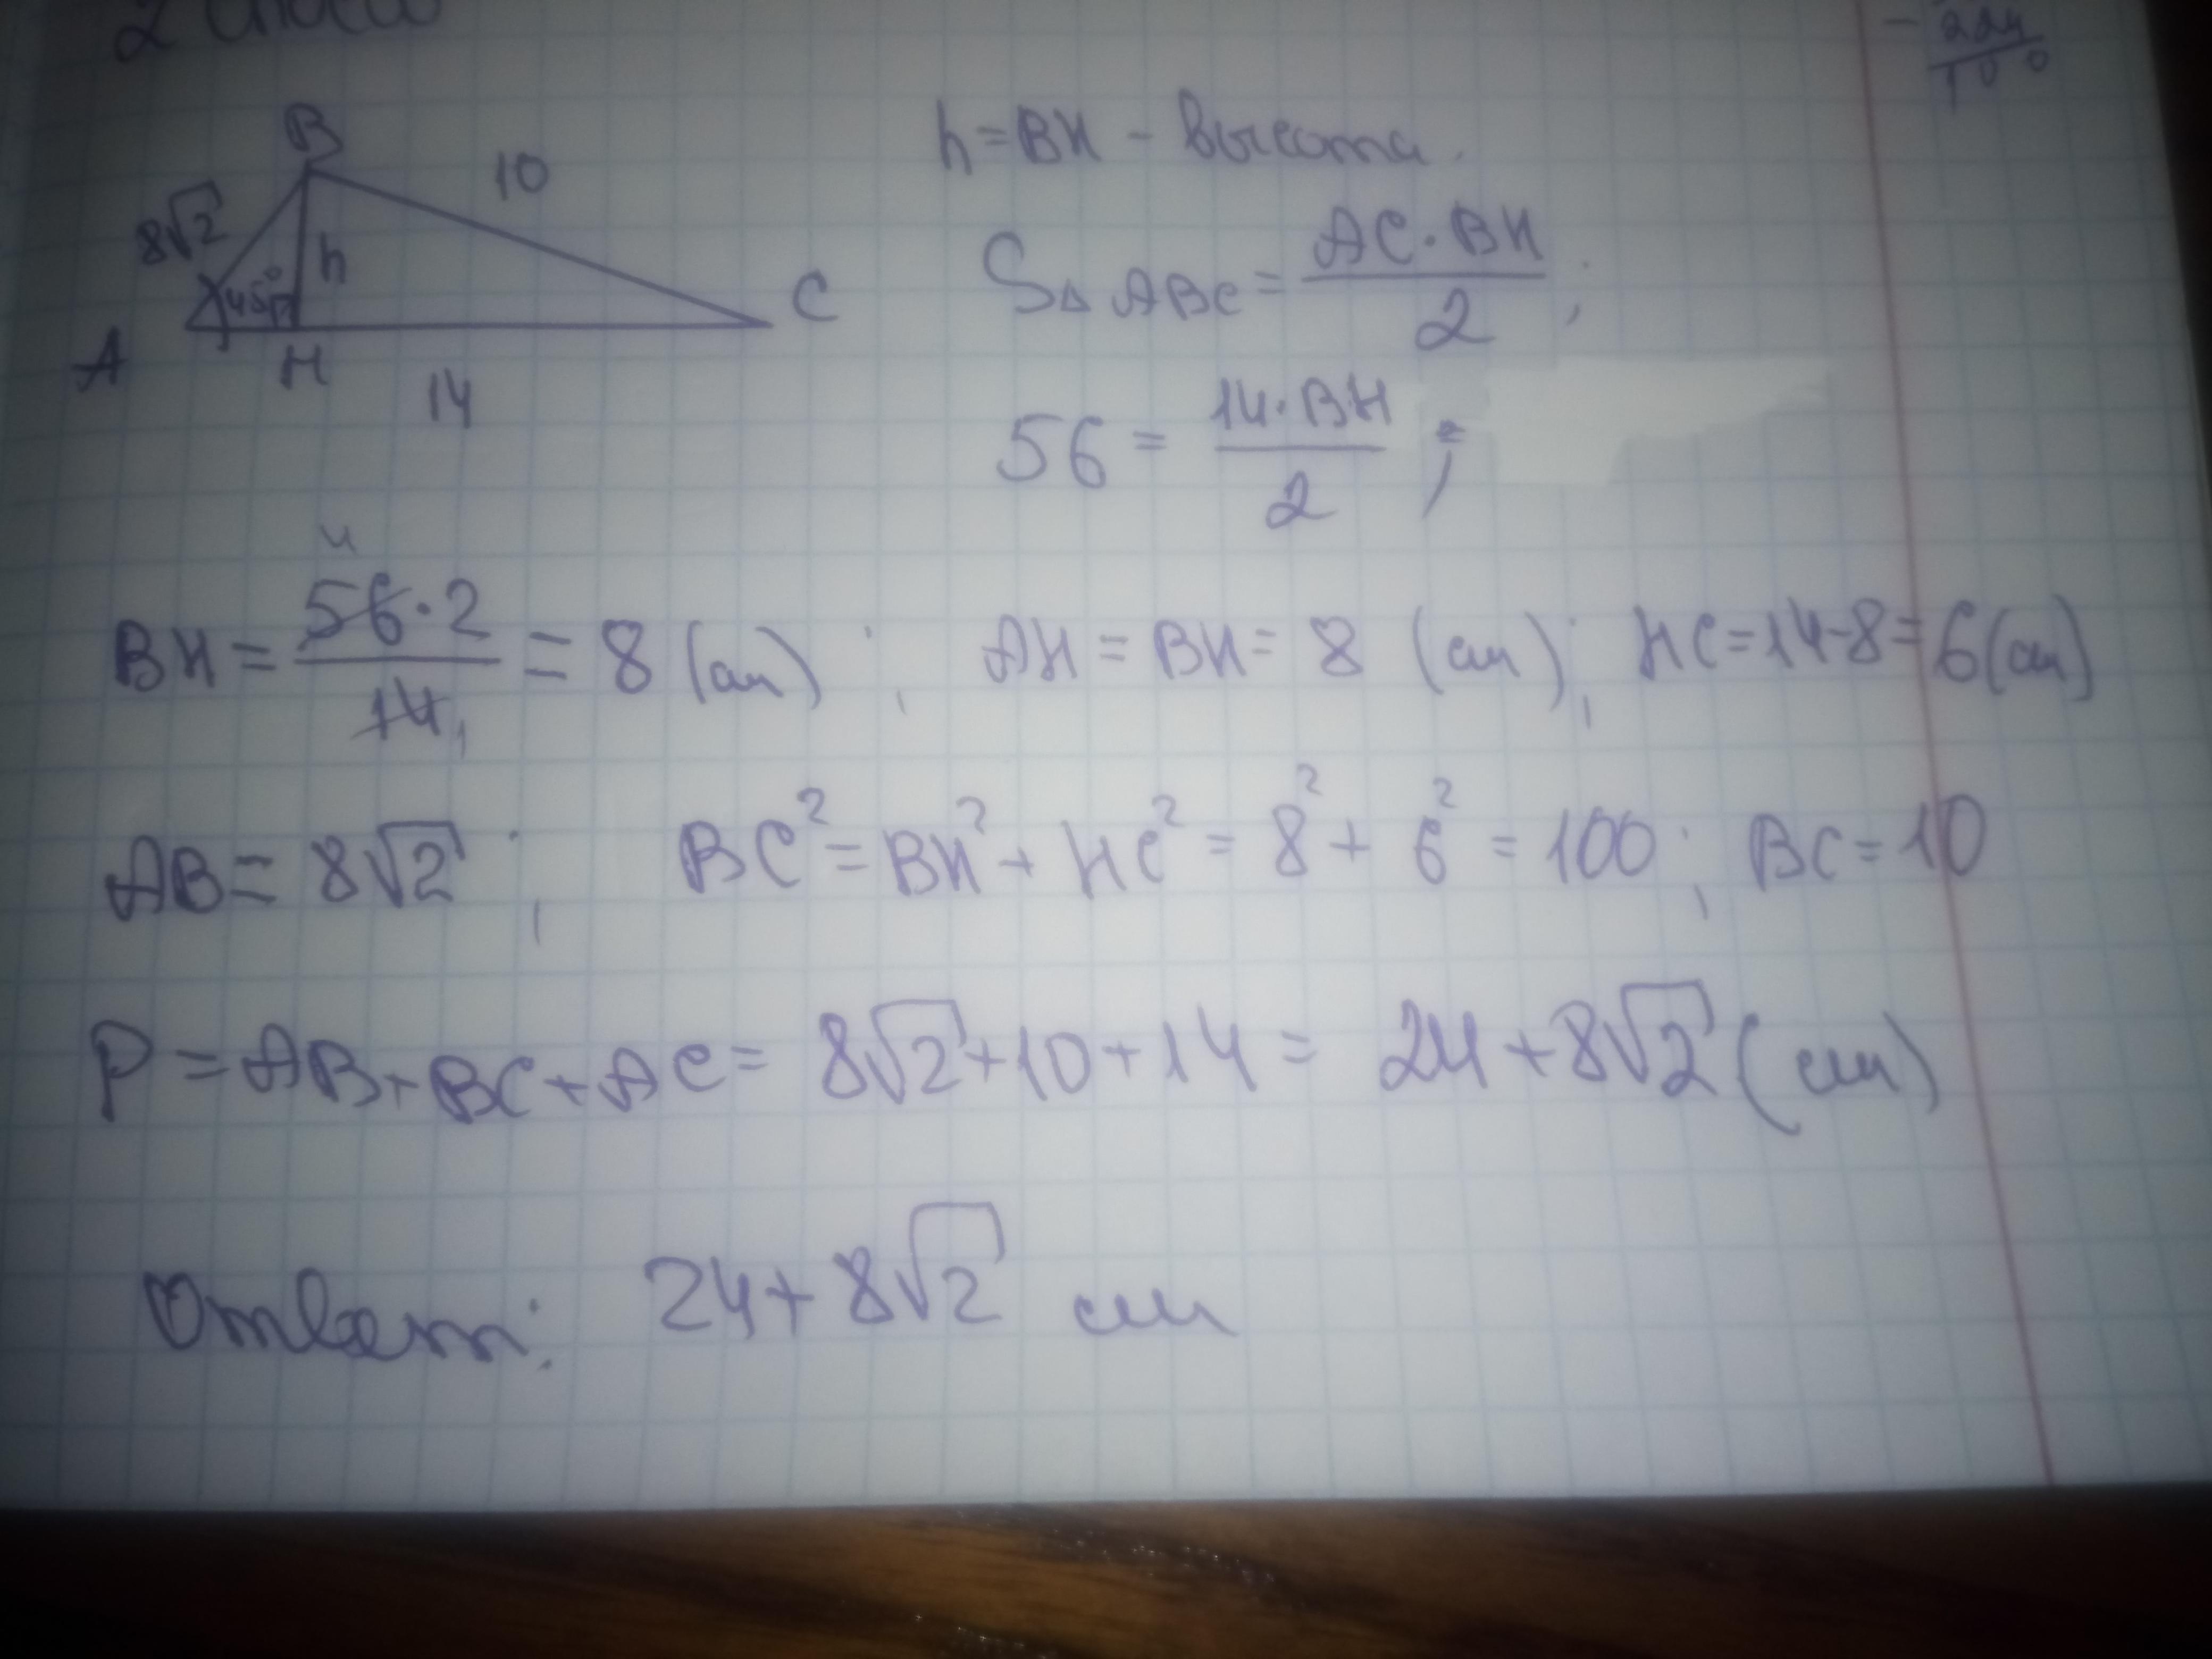 2 способ
- 224
100
B
8√2
10
45°
h
A
H
14
C
h = BH - высота.
S△ABC = AC·BH / 2 ;
56 = 14·BH / 2 ;
4
BH = 56·2 / 14 1 = 8 (см) ; AH = BH = 8 (см) ; HC = 14-8 = 6 (см)
AB = 8√2 ; BC² = BH² + HC² = 8² + 6² = 100 ; BC = 10
P = AB + BC + AC = 8√2 + 10 + 14 = 24 + 8√2 (см)
Ответ: 24 + 8√2 см